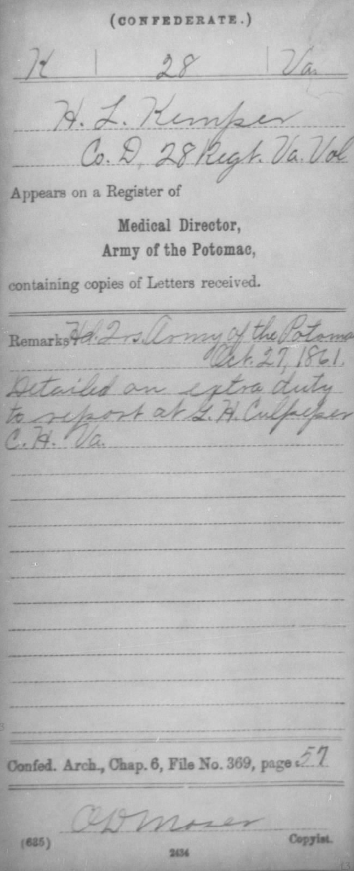 (CONFEDERATE.)
K | 28 | Va.
H. L. Kemper
Co. D, 28 Regt. Va. Vol
Appears on a Register of
Medical Director,
Army of the Potomac,
containing copies of Letters received.
Remarks Hd. Qrs. Army of the Potomac
Oct. 27, 1861.
Detailed on extra duty
to report at G. H. Culpeper
C. H. Va.
Confed. Arch., Chap. 6, File No. 369, page 57
C D Moser
(635) Copyist.
2434